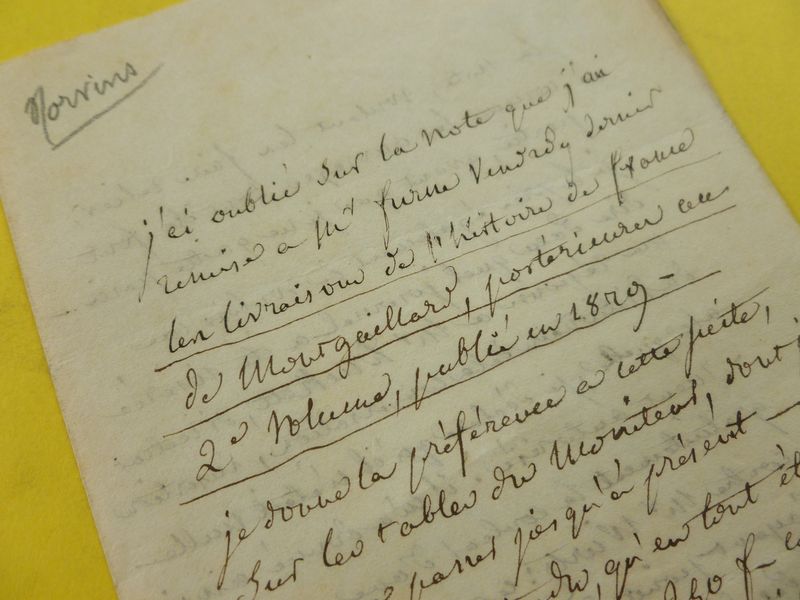 Norvins
j'ai oublié sur la note que j'ai
remise a Mr furne Vendredy dernier
les livraisons de l'histoire de france
de Montgaillard, postérieures au
2e volume, publié en 1829 -
je donne la préférence a cette suite,
sur les tables du Moniteur, dont j
passer jusqu'à présent —
qu'en tout ét
f